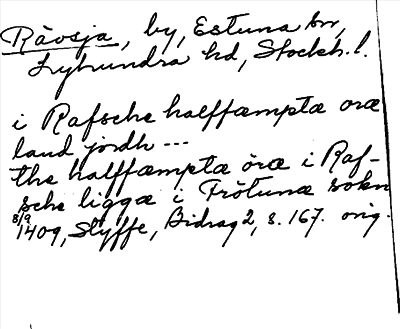 Rävsja, by, Estuna sn,
Lyhundra hd, Stockh. l.
i Rafsche halffæmptæ oræ
land jordh ---
the halffæmptæ öræ i Raf-
sche liggæ i Frötunæ sokn
8/9 1409, Styffe, Bidrag 2, s. 167. orig.